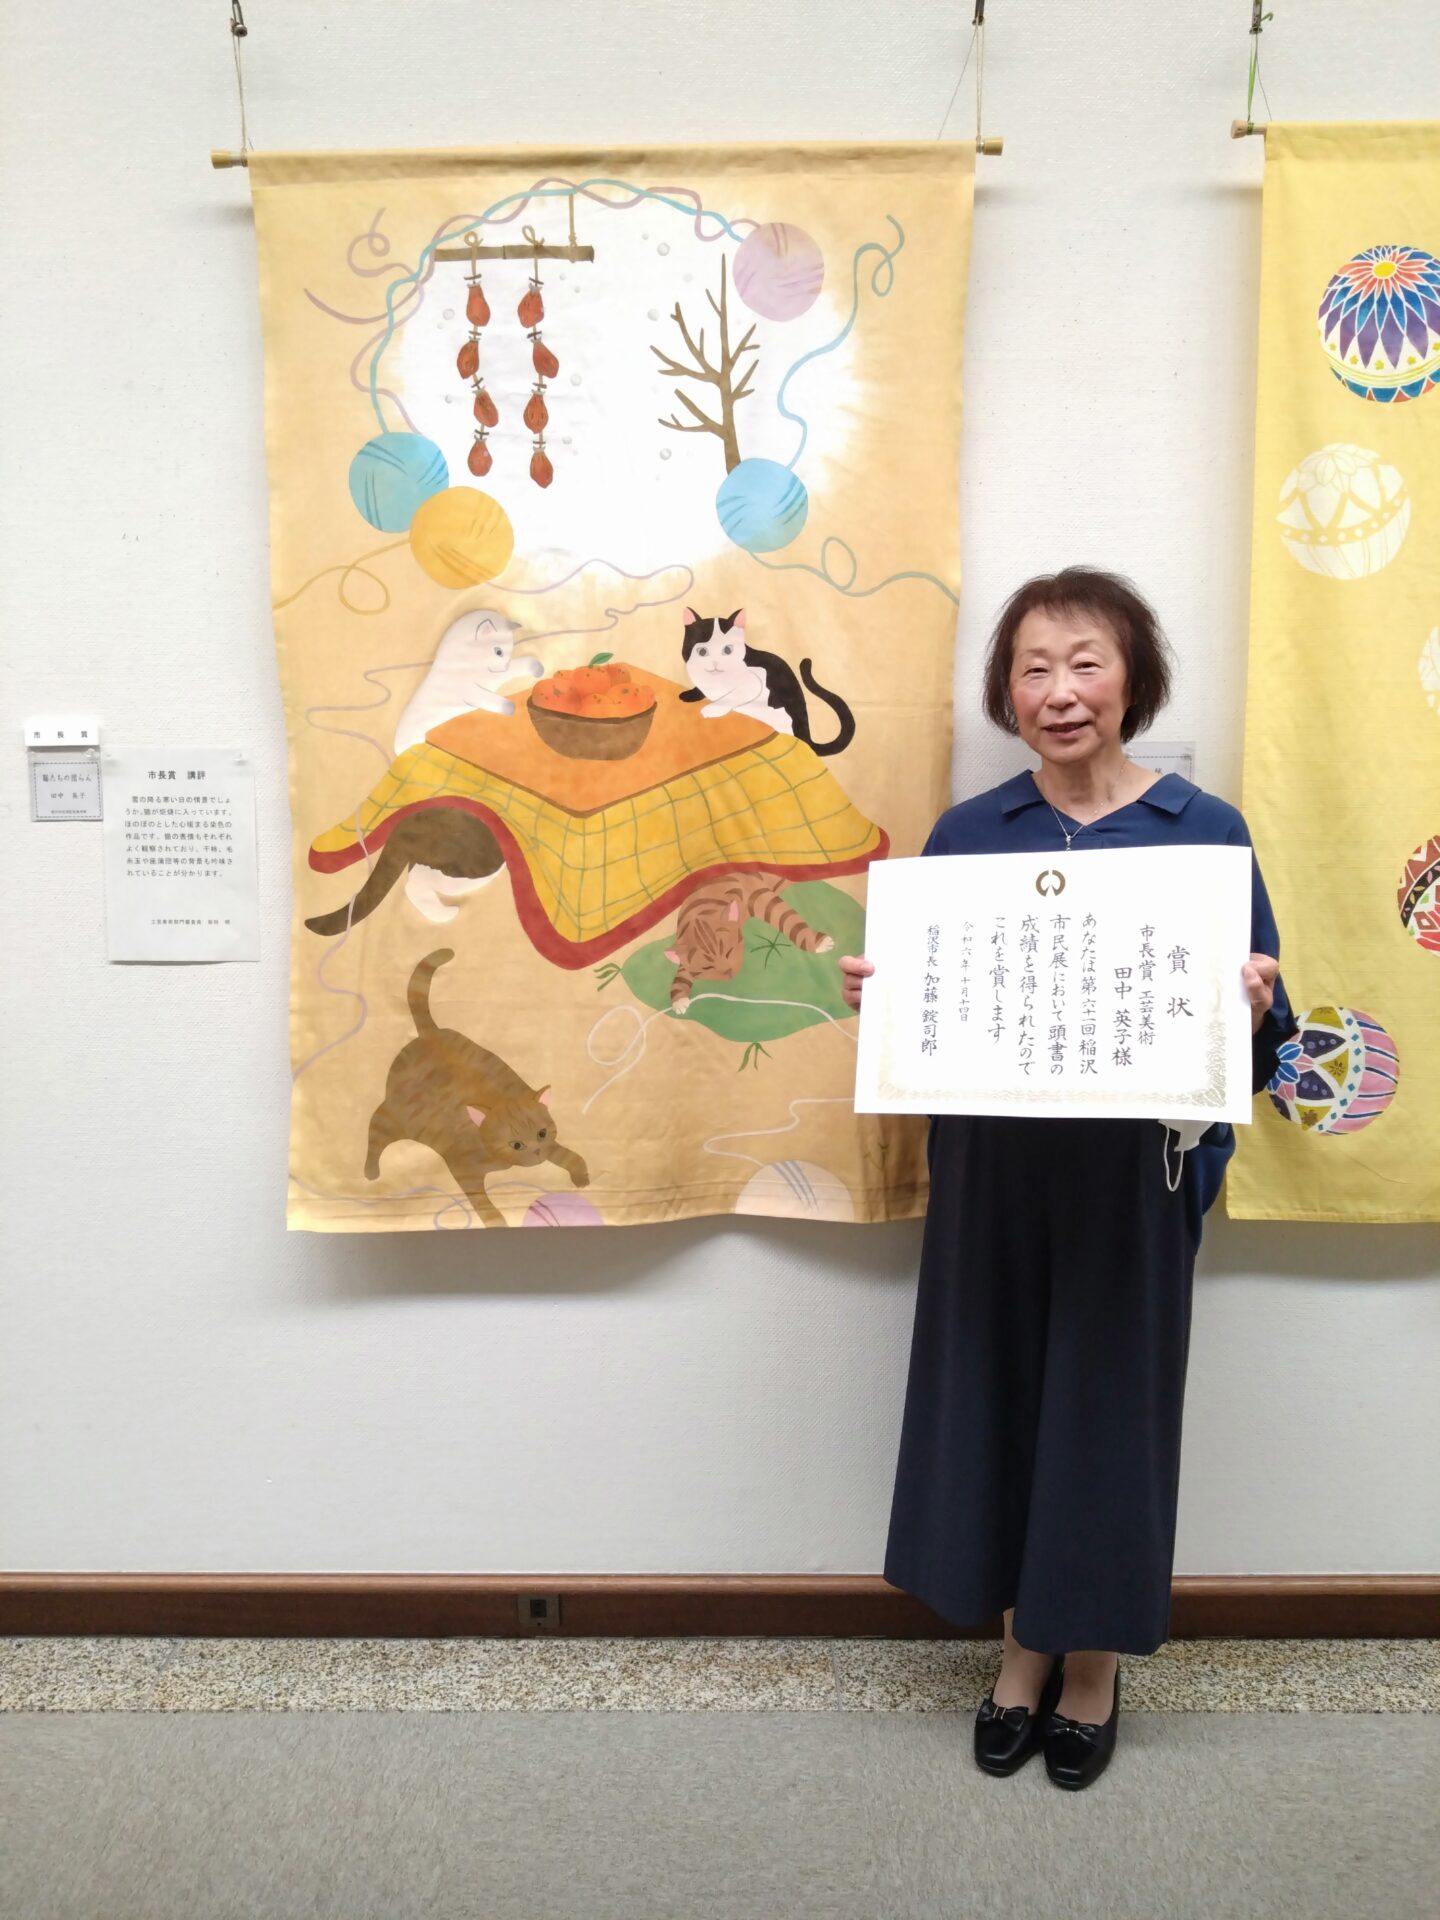 市長賞
猫たちの団らん
田中 英子
市長賞 講評
雪の降る寒い日の情景でしょ
うか。猫が炬燵に入っています。
ほのぼのとした心暖まる染色の
作品です。猫の表情もそれぞれ
よく観察されており、干柿、毛
糸玉や座蒲団等の背景も吟味さ
れていることが分かります。
工芸美術部門審査員
賞状
市長賞 工芸美術
田中 英子様
あなたは第六十一回稲沢
市民展において頭書の
成績を得られたので
これを賞します
令和六年十月十四日
稲沢市長 加藤 錠司郎